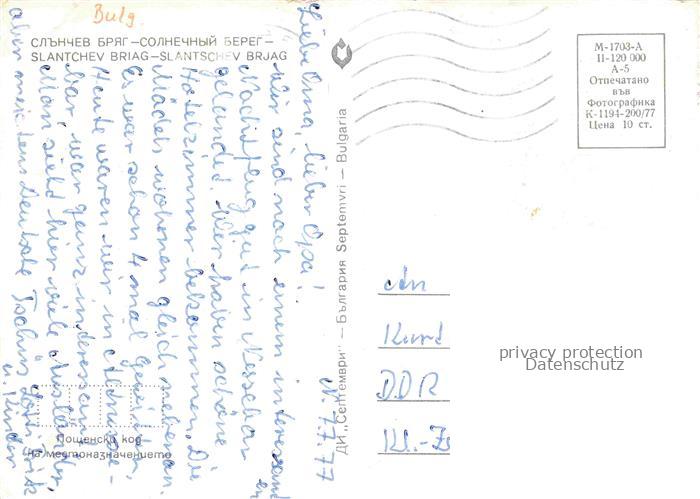 Bulg.
СЛЪНЧЕВ БРЯГ — СОЛНЕЧНЫЙ БЕРЕГ —
SLANTCHEV BRIAG — SLANTSCHEV BRJAG
N 7.7.77
Liebe Oma, lieber Opa!
Wir sind nach einem interessanten
Nachtflug gut in Nessebar
gelandet. Wir haben schöne
Hotelzimmer bekommen. Die
Mädels wohnen gleich nebenan.
Es war schon 4 mal
Heute waren wir in
bar, war ganz interessant.
Man sieht hier viele Ausländer,
aber meistens Deutsche. Tschüs
u. Kinder
Пощенски код
на местоназначението
ДИ „Септември" — България Septemvri — Bulgaria
М-1703-А
II-120 000
А-5
Отпечатано
във
Фотографика
К-1194-200/77
Цена 10 ст.
An
Kurt
DDR
Kl.-Z
privacy protection
Datenschutz